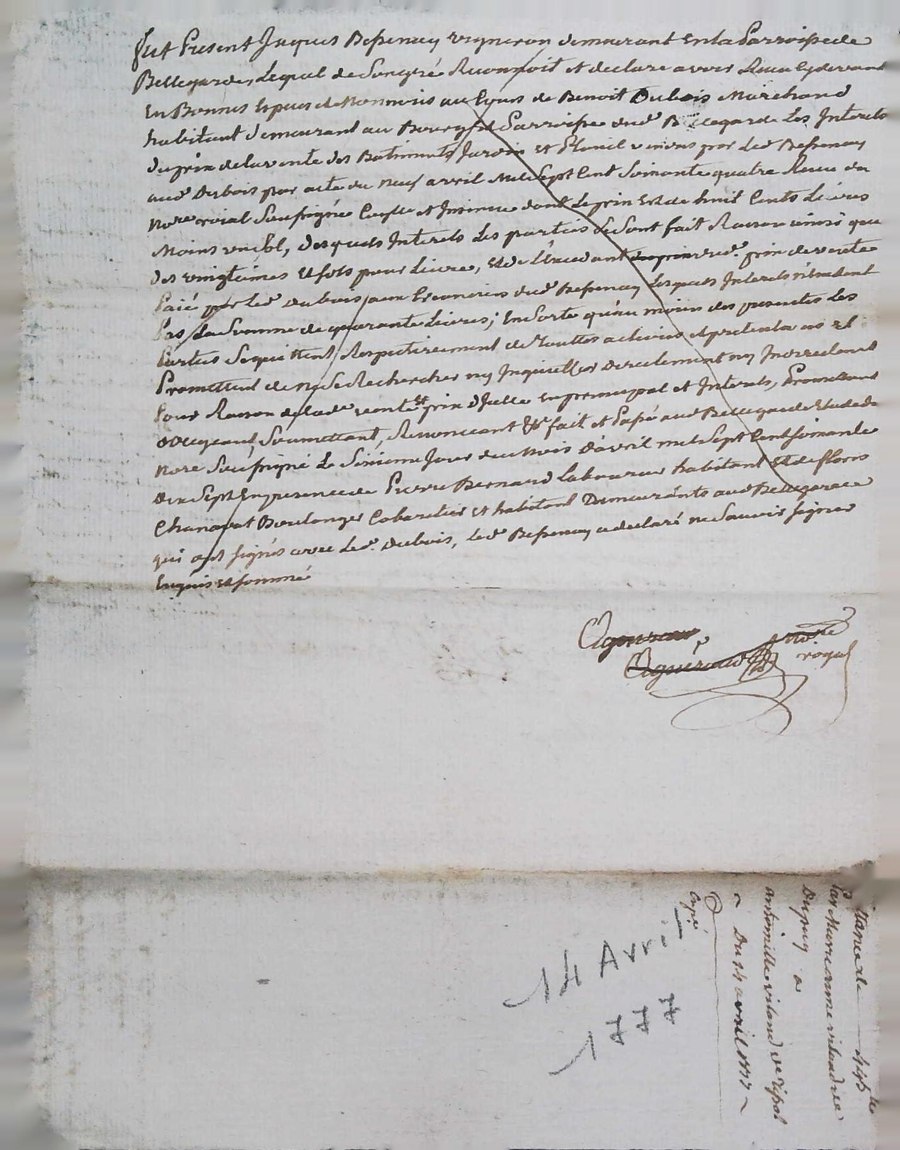 Fut Present Jacques Bessenay vigneron demeurant en la Parroisse de
Bellegarde, Lequel de Son gré Reconnoit et declare avoir Receu cydevant
En Bonnes Especes de Monnoie au Cours de Benoit Dubois Marchand
habitant demeurant au Bourg et Parroisse dud. Bellegarde Les Interets
du prix de la vente des Batiments Jardin et Chenil venus par Led. Bessenay
aud. Dubois par acte du Neuf avril Mil Sept Cent Soixante quatre Receu du
Nore. roial Soussigné et Insinué dont Le prix Est de huit Cents Livres
Moins un sol, desquels Interets Les parties Se Sont fait Raison ainsi que
des vingtiemes et sols pour Livre, et de L'Excedant dud. prix de vente
Paié par Led. Dubois aux Creanciers dud. Bessenay Lesquels Interets
Pas La Somme de quarante Livres; En Sorte qu'au moien des presentes Les
Parties Se quittent Respectivement de Touttes actions et pretentions et
Promettent de ne Se Rechercher ny Inquietter directement ny Indirectement
Pour Raison de lade. vente et prix d'Icelle En principal et Interets, Promettant
obligeant, Soumettant, Renonceant &a. fait et Passé aud. Bellegarde Etude du
Nore. Soussigné Le Sixieme Jour du Mois d'avril mil Sept Cent Soixante
Dix Sept En presence de Pierre Bernard Laboureur habitant et de
Chanavat Boulanger Cabaretier et habitant Demeurants aud. Bellegarde
qui ont signés avec Led. Dubois, Led. Bessenay a declaré ne Sauoir Signer
Enquis et sommé
nore
royal
Quittance de 445 ls
par Marie
Dupuy a
antoinette
Du 14 avril 1777
Expé
14 Avril
1777